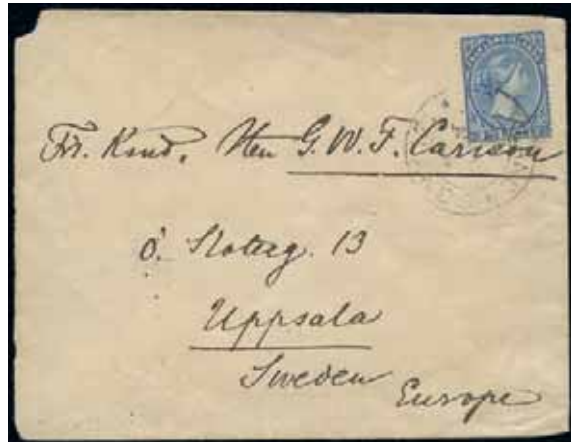 Fr. Kand. Herr G. W. F. Carlson
Ö. Slotsg. 13
Uppsala
Sweden
Europe